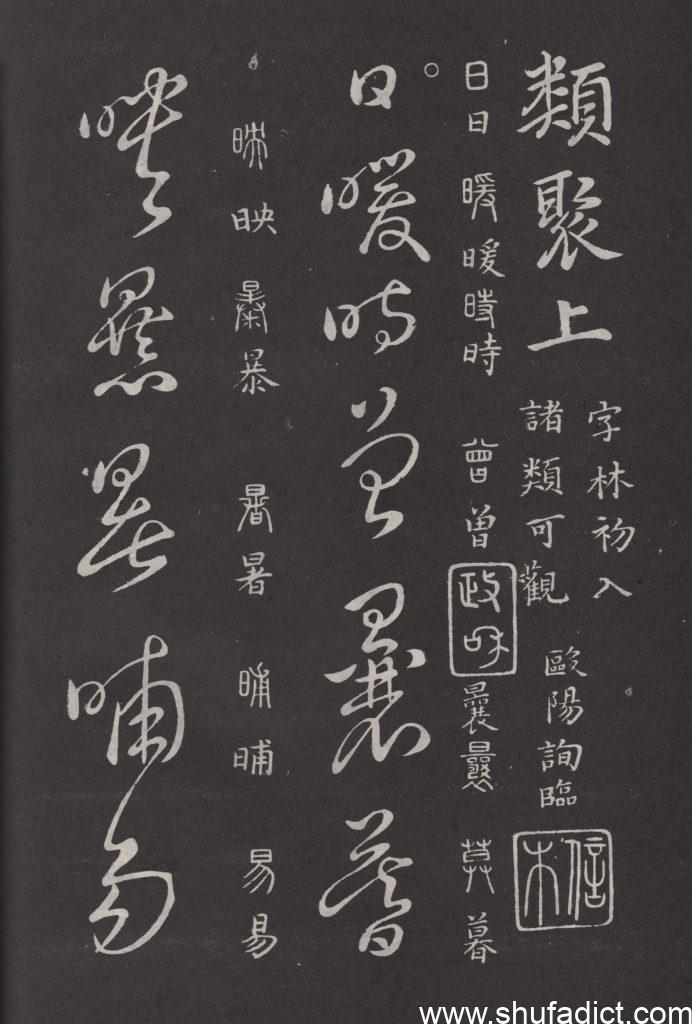 類聚上
字林初入
諸類可觀
歐陽詢臨
信本
日日 暖暖 時時 曾曾 曩曩 莫暮
政和
日暖時曾曩暮
映映 暴暴 暑暑 晡晡 易易
映暴暑晡易
www.shufadict.com